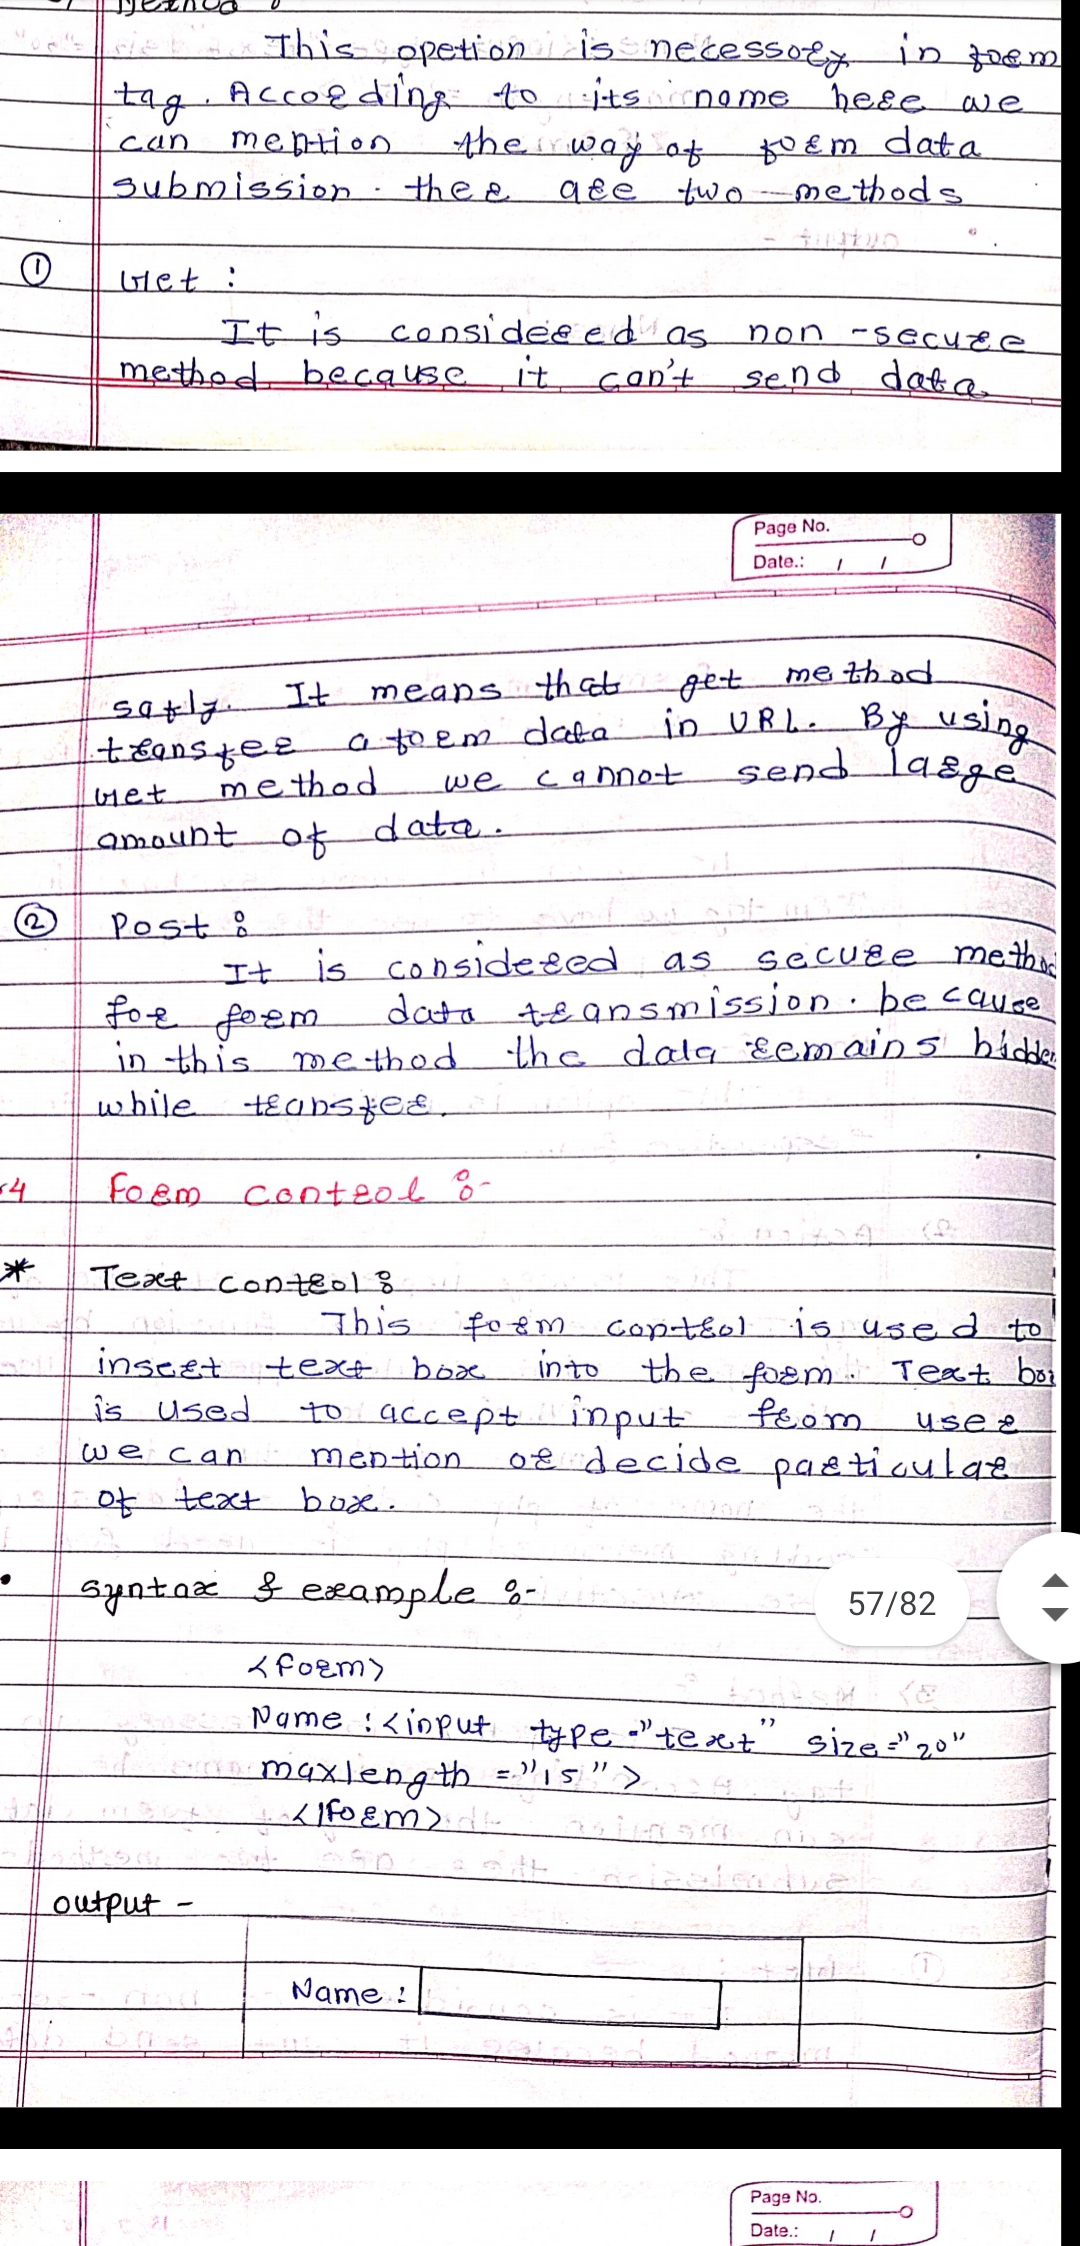 Method :
This opetion is necessory in form
tag. According to its name here we
can mention the way of form data
submission. ther are two methods
① Get :
It is considered as non-secure
method because it can't send data
Page No.
Date.: / /
satly. It means that get method
transfer a form data in URL. By using
Get method we cannot send large
amount of data.
② Post :
It is considered as secure method
for form data transmission. because
in this method the data remains hidden
while transfer.
4 Form control :-
* Text control :
This form control is used to
insert text box into the form. Text box
is used to accept input from user
we can mention or decide particular
of text box.
• syntax & example :-
57/82
<form>
Name : <input type="text" size="20"
maxlength ="15">
</form>
output -
Name :
Page No.
Date.: / /